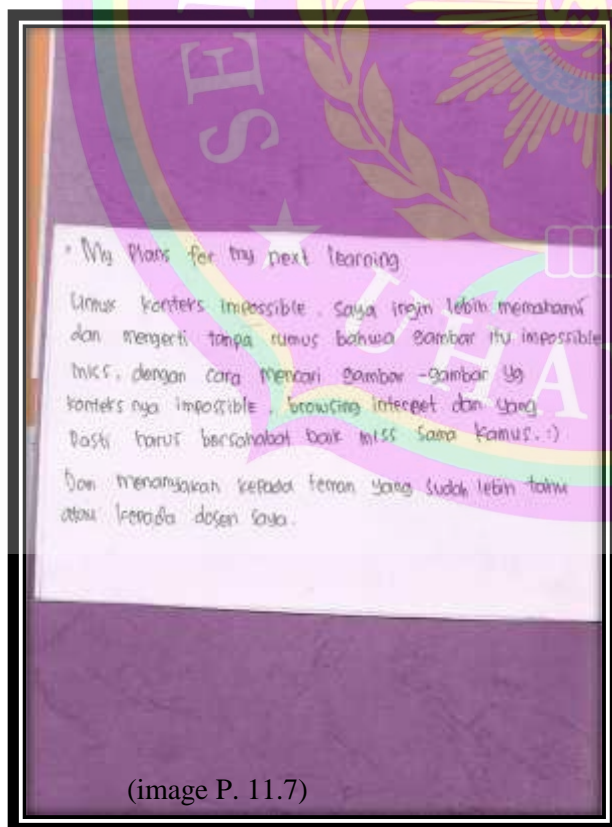 SET
UHA
• My Plans for my next learning
Untuk konteks impossible. saya ingin lebih memahami
dan mengerti tanpa rumus bahwa gambar itu impossible
miss, dengan cara mencari gambar-gambar yg
konteks nya impossible, browsing internet dan yang
Pasti harus bersahabat baik miss sama kamus. :)
Dan menanyakan kepada teman yang sudah lebih tahu
atau kepada dosen saya.
(image P. 11.7)